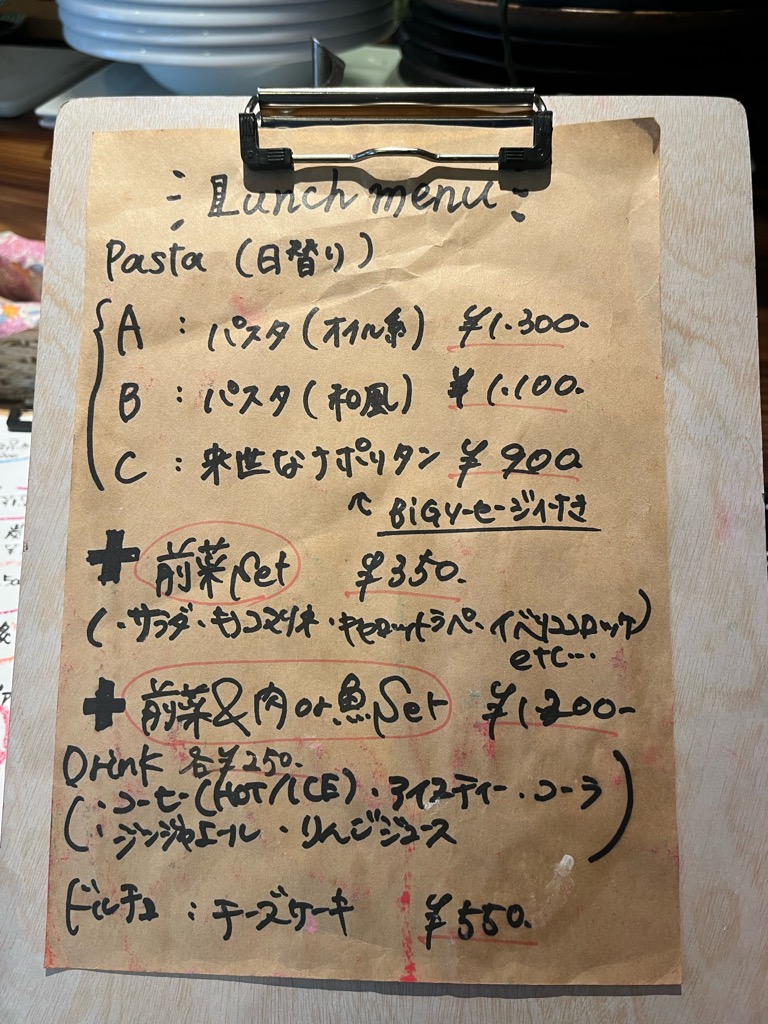 Lunch menu
Pasta (日替り)
A : パスタ(オイル系) ¥1.300-
B : パスタ(和風) ¥1.100-
C : 来世なナポリタン ¥900
↖ BiGソーセージ付き
+ 前菜Set ¥350.
(・サラダ・キノコマリネ・キャロットラペ・イベリココロッケ)
etc...
+ 前菜&肉or魚Set ¥1.200-
Drink 各¥250.
(・コーヒー(HOT/ICE)・アイスティー・コーラ
・ジンジャエール・りんごジュース)
ドルチェ : チーズケーキ ¥550.